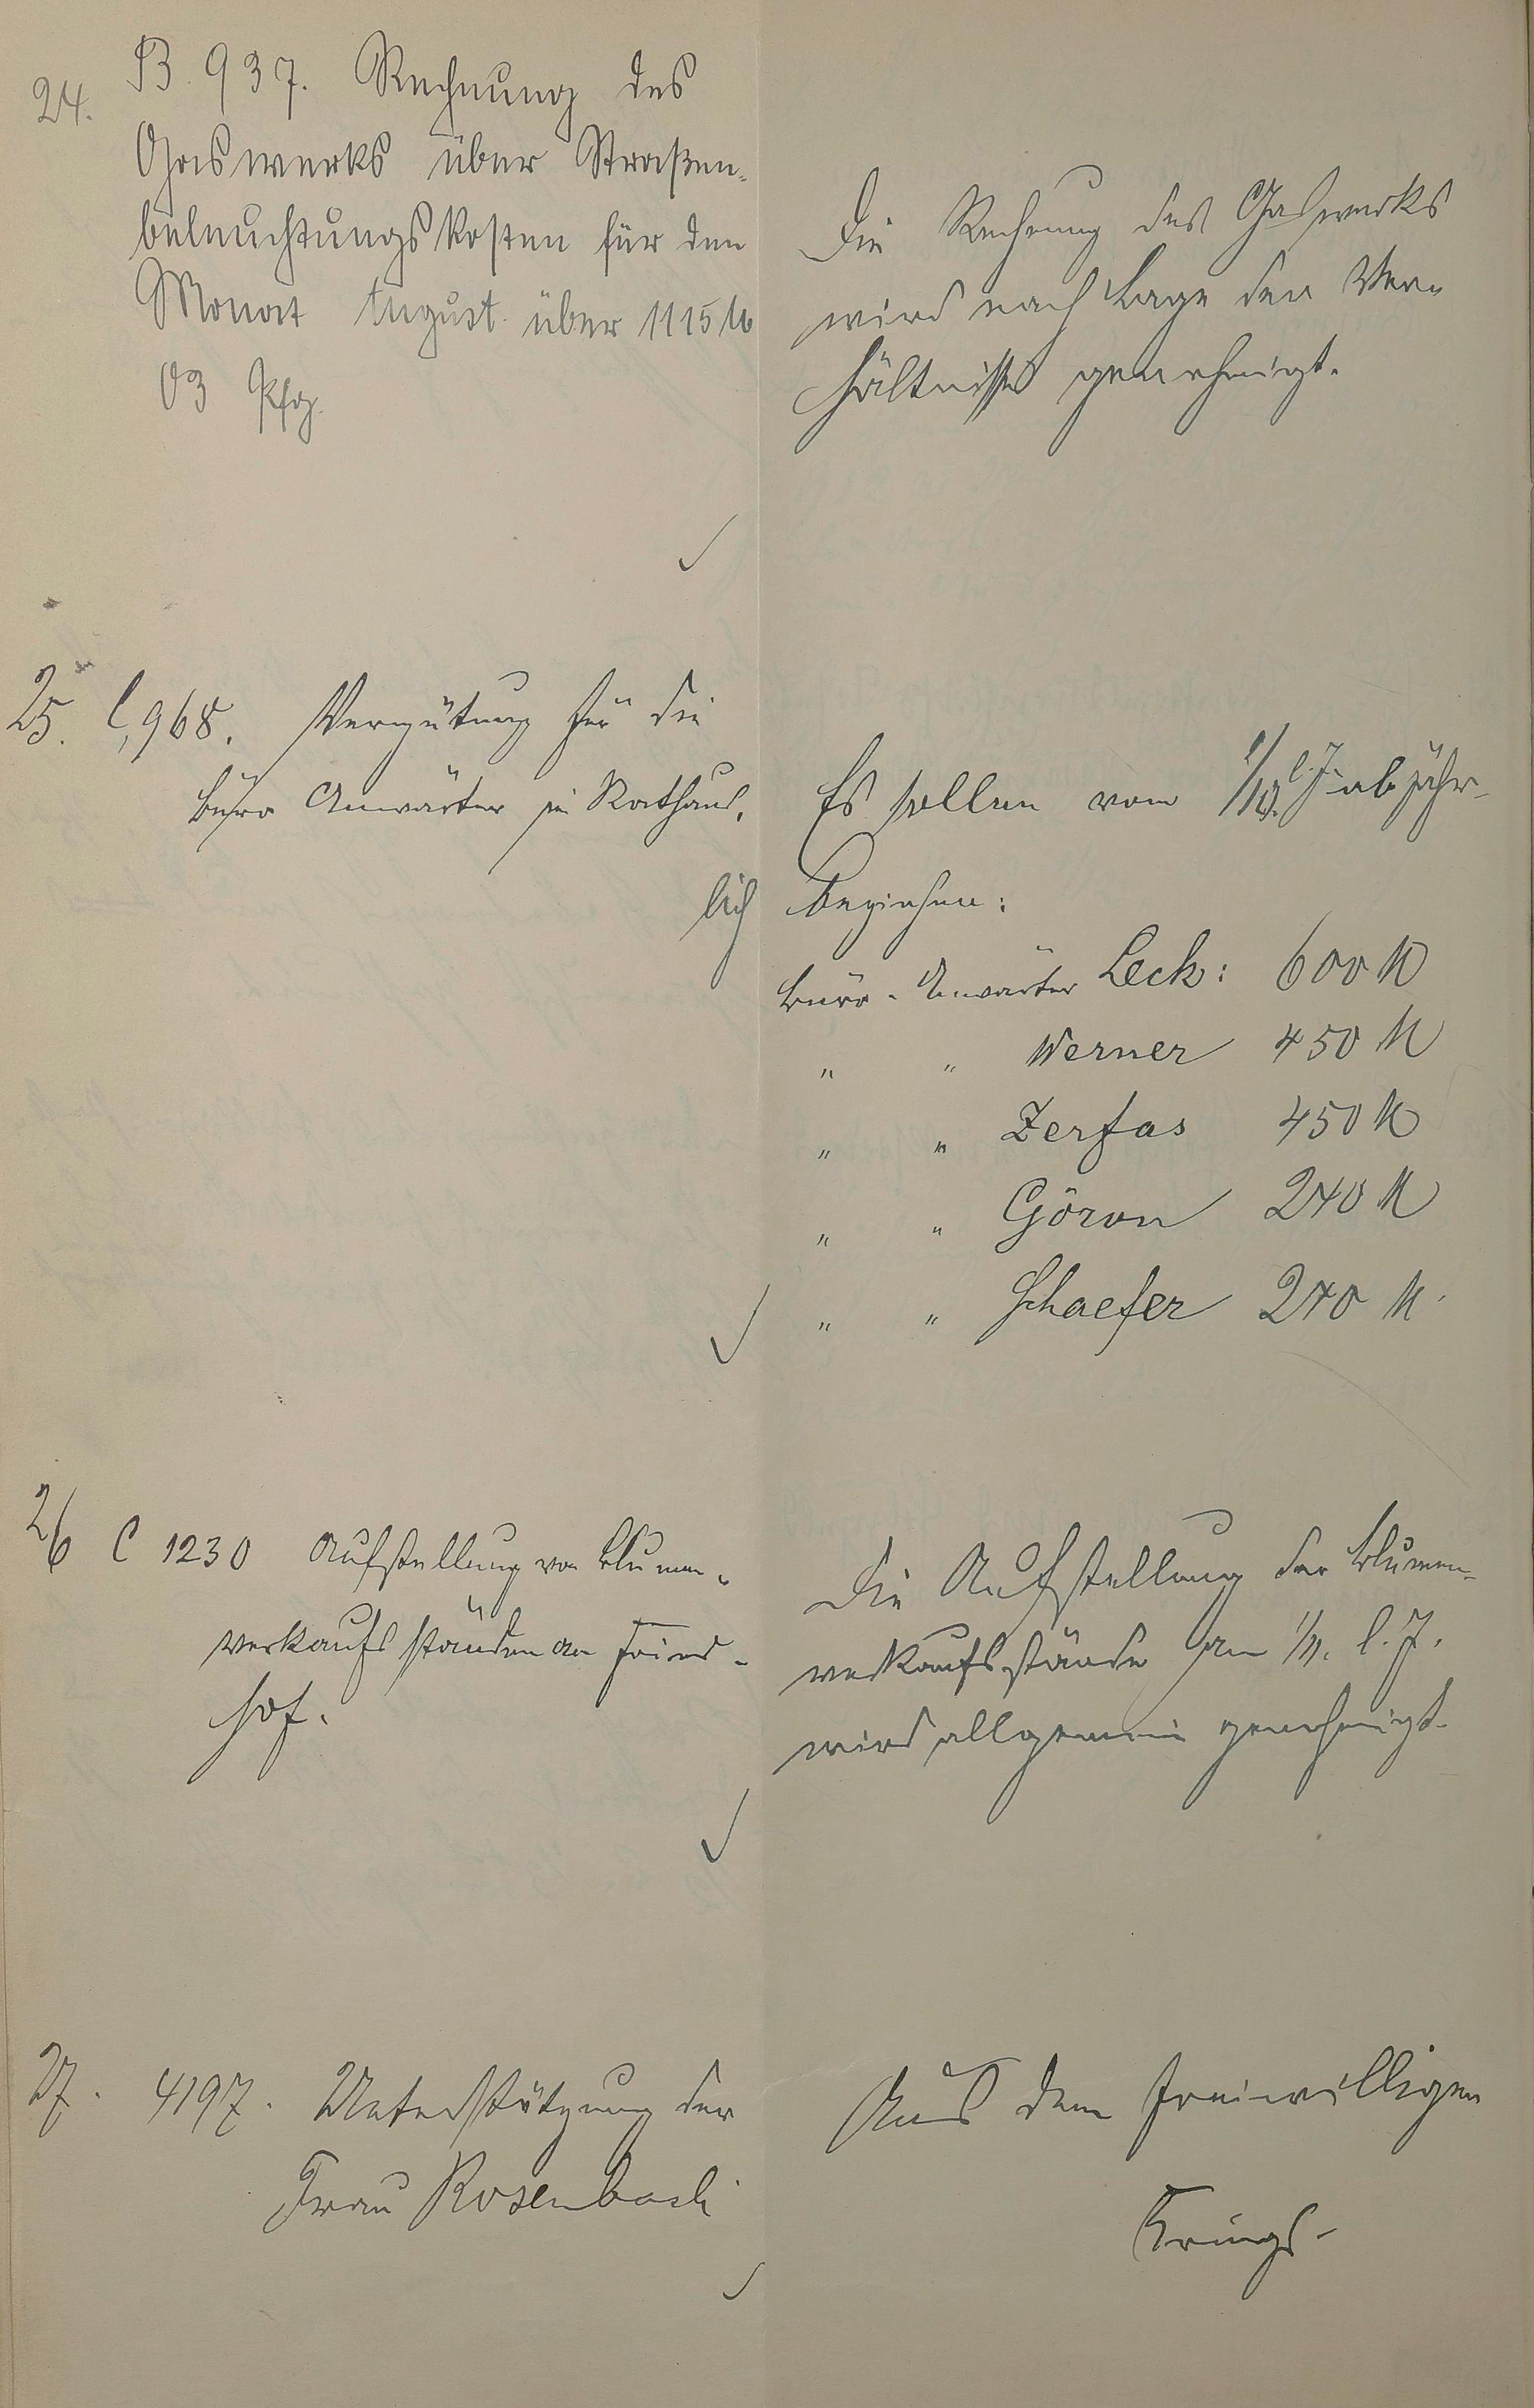 24. B. 937. Rechnung des
Gaswerks über Straßen-
beleuchtungskosten für den
Monat August über 1115 M
03 Pfg.
Die Rechnung des Gaswerks
wird nach Lage der Ver-
hältnisse genehmigt.
25. C, 968. Vergütung für die
Büro Anwärter im Rathaus.
Es sollen vom 1/10. l. J. ab jähr-
lich beziehen:
Büro-Anwärter Leck: 600 M
" " Werner 450 M
" " Zerfas 450 M
" " Göron 240 M
" " Schaefer 240 M.
26 C 1230 Aufstellung von Blumen-
verkaufsständen am Fried-
hof.
Die Aufstellung der Blumen-
verkaufsstände am 1/11. l. J.
wird allgemein genehmigt.
27. 4197. Unterstützung der
Frau Rosenbach
Aus dem freiwilligen
Kriegs-